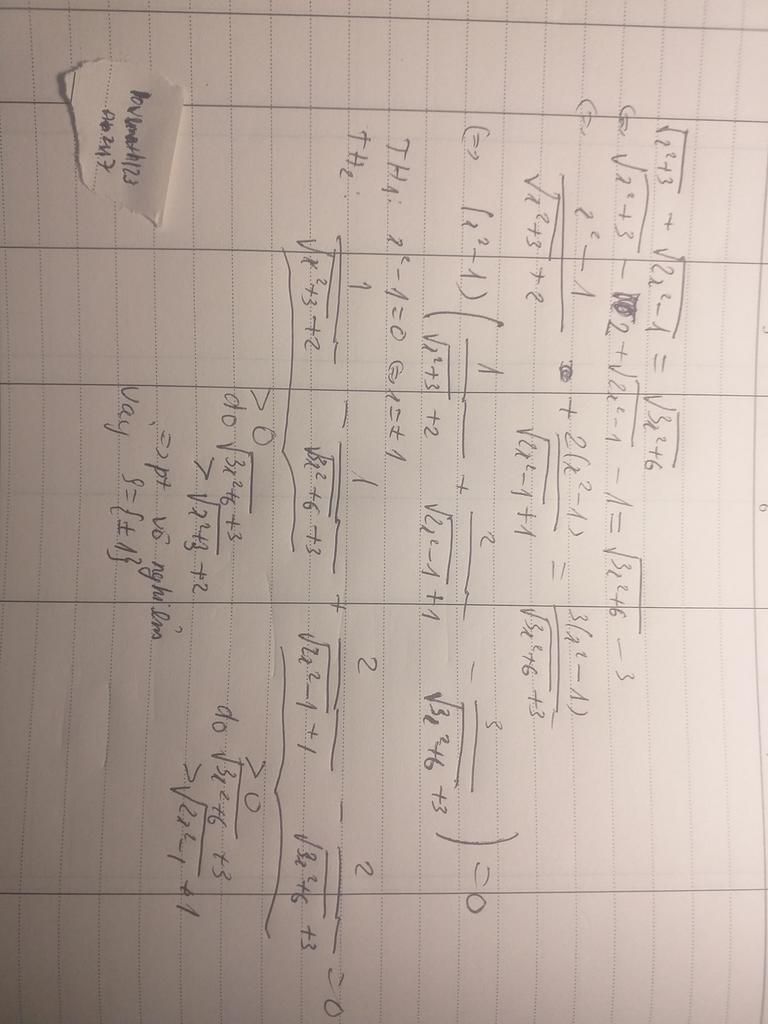 √x²+3 + √2x²-1 = √3x²+6
⇔ √x²+3 - 2 + √2x²-1 - 1 = √3x²+6 - 3
⇔ x²-1 / √x²+3 + 2 + 2(x²-1) / √2x²-1 + 1 = 3(x²-1) / √3x²+6 + 3
⇔ (x²-1) ( 1 / √x²+3 + 2 + 2 / √2x²-1 + 1 - 3 / √3x²+6 + 3 ) = 0
TH1: x²-1=0 ⇔ x=±1
TH2: 1 / √x²+3 + 2 - 1 / √3x²+6 + 3 + 2 / √2x²-1 + 1 - 2 / √3x²+6 + 3 = 0
>0 >0
do √3x²+6 + 3 do √3x²+6 + 3
> √x²+3 + 2 > √2x²-1 + 1
⇒ pt vô nghiệm
Vậy S={±1}